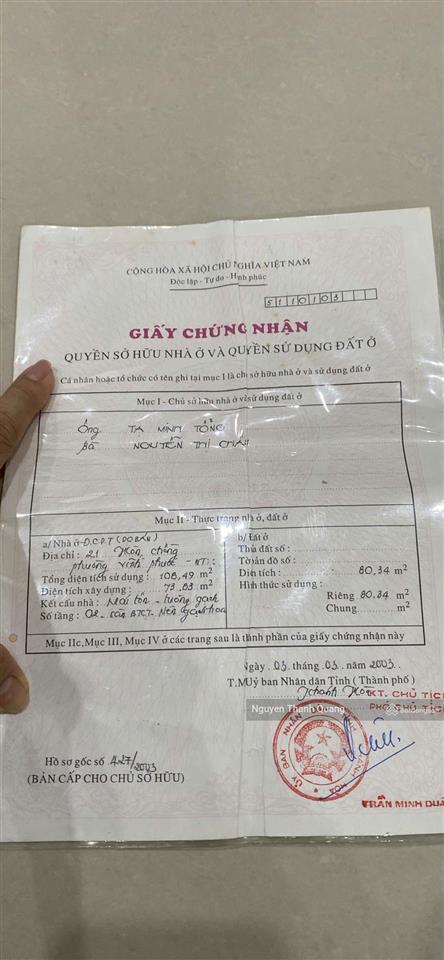 CỘNG HÒA XÃ HỘI CHỦ NGHĨA VIỆT NAM
Độc lập - Tự do - Hạnh phúc
5110103
GIẤY CHỨNG NHẬN
QUYỀN SỞ HỮU NHÀ Ở VÀ QUYỀN SỬ DỤNG ĐẤT Ở
Cá nhân hoặc tổ chức có tên ghi tại mục I là chủ sở hữu nhà ở và sử dụng đất ở
Mục I - Chủ sở hữu nhà ở và sử dụng đất ở
Ông TẠ MINH TỒNG
Bà NGUYỄN THỊ
Mục II - Thực trạng nhà ở, đất ở
a/ Nhà ở
Địa chỉ : 21 Hòn Chồng
phường Vĩnh Phước - NT
Tổng diện tích sử dụng : 108,49 m²
Diện tích xây dựng : 73,83 m²
Kết cấu nhà : Mái tôn - tường gạch
Số tầng : 02 - sàn BTCT. Nền gạch hoa
b/ Đất ở
Thửa đất số :
Tờ bản đồ số :
Diện tích : 80,34 m²
Hình thức sử dụng :
Riêng 80.34 m²
Chung m²
Mục IIc, Mục III, Mục IV ở các trang sau là thành phần của giấy chứng nhận này
Ngày 03 tháng 03 năm 2003
T.M Uỷ ban Nhân dân Tỉnh ( Thành phố )
Khánh Hòa
KT. CHỦ TỊCH
PHÓ CHỦ TỊCH
Nguyen Thanh Quang
ỦY BAN NHÂN DÂN
Hồ sơ gốc số 427/2003
(BẢN CẤP CHO CHỦ SỞ HỮU)
TRẦN MINH